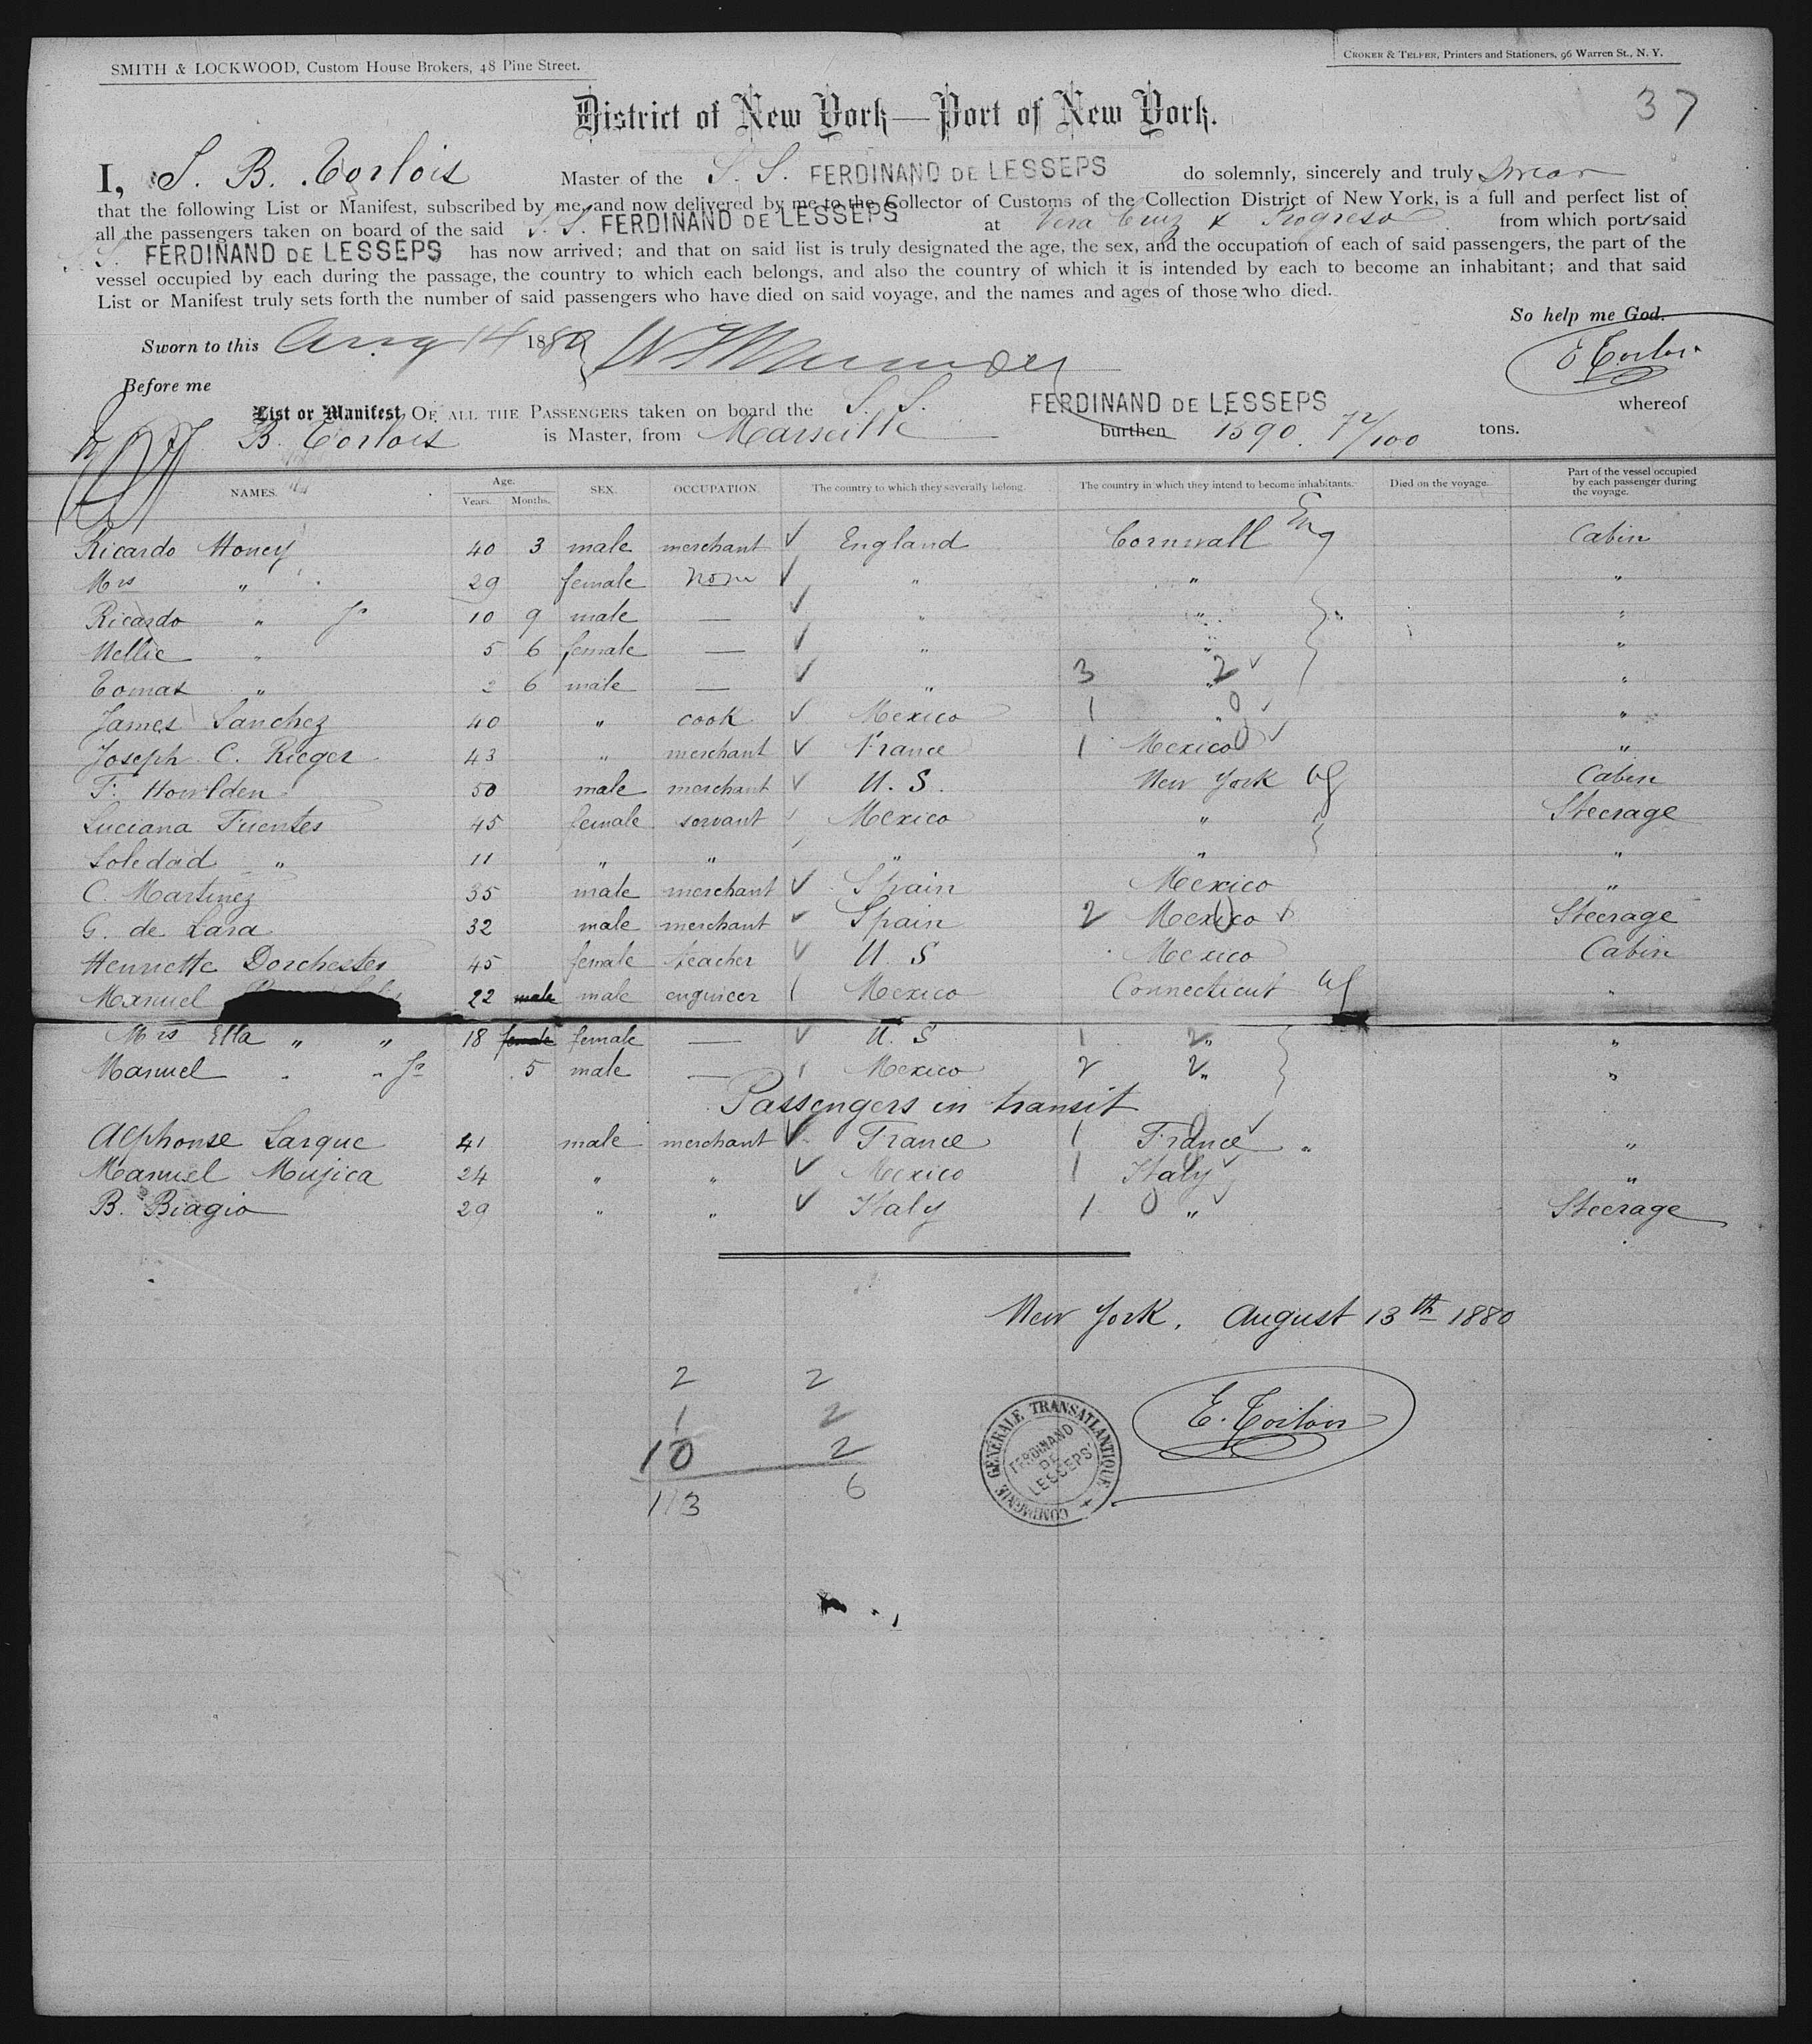 SMITH & LOCKWOOD, Custom House Brokers, 48 Pine Street.
CROKER & TELFER, Printers and Stationers, 96 Warren St., N. Y.
37
District of New York—Port of New York.
I, S. B. Torlois Master of the S. S. FERDINAND DE LESSEPS do solemnly, sincerely and truly swear
that the following List or Manifest, subscribed by me, and now delivered by me to the Collector of Customs of the Collection District of New York, is a full and perfect list of
all the passengers taken on board of the said S. S. FERDINAND DE LESSEPS at Vera Cruz & Progreso from which port said
S. FERDINAND DE LESSEPS has now arrived; and that on said list is truly designated the age, the sex, and the occupation of each of said passengers, the part of the
vessel occupied by each during the passage, the country to which each belongs, and also the country of which it is intended by each to become an inhabitant; and that said
List or Manifest truly sets forth the number of said passengers who have died on said voyage, and the names and ages of those who died.
So help me God.
Sworn to this Aug 14 1880
Before me
List or Manifest, OF ALL THE PASSENGERS taken on board the S. S. FERDINAND DE LESSEPS whereof
B. Torlois is Master, from Marseille burthen 1590. 72/100 tons.
NAMES. Age. Years. Months. SEX. OCCUPATION. The country to which they severally belong. The country in which they intend to become inhabitants. Died on the voyage. Part of the vessel occupied by each passenger during the voyage.
Ricardo Honey 40 3 male merchant England Cornwall Eng Cabin
Mrs " 29 female none " " "
Ricardo " Jr 10 9 male — " " "
Nellie " 5 6 female — " " "
Tomas " 2 6 male — " 3 " 2 "
James Sanchez 40 " cook Mexico 1 " 0 "
Joseph C. Rieger 43 " merchant France 1 Mexico 0 "
F. Howlden 50 male merchant U. S. New York Cabin
Luciana Fuentes 45 female servant Mexico " Steerage
Soledad " 11 " " " " "
C. Martinez 35 male merchant Spain Mexico "
G. de Lara 32 male merchant Spain 2 Mexico 0 Steerage
Henriette Dorchester 45 female teacher U. S Mexico Cabin
Manuel 22 male male engineer Mexico Connecticut "
Mrs Ella " " 18 female female — U. S 1 2 " "
Manuel " " Jr 5 male — Mexico 2 2 " "
Passengers in transit
Alphonse Larque 41 male merchant France 1 France 0 "
Manuel Mujica 24 " " Mexico 1 Italy 0 "
B. Biagio 29 " " Italy 1 0 " Steerage
New York, August 13th 1880
2 2
1 2
10 2
13 6
COMPAGNIE GÉNÉRALE TRANSATLANTIQUE
FERDINAND
DE
LESSEPS
E. Torlois